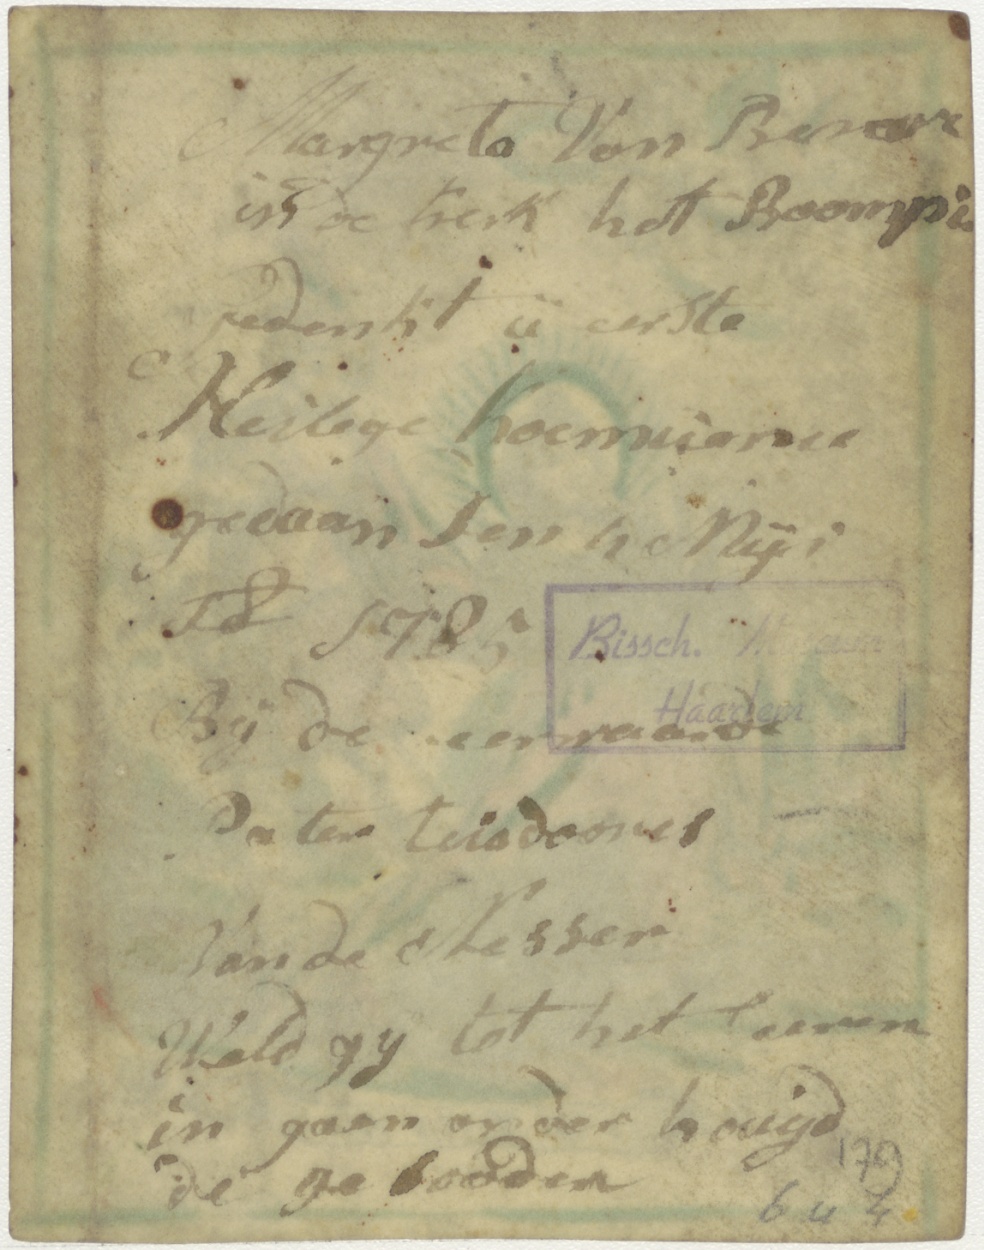 Margreta Van
in de kerk het Boompie
gedenkt ü eerste
Heilege hoemunie
gedaan den
1785
Bÿ de eerwaarde
Pater teiodoorus
Van de
Weld gy tot het leeven
in gaen onder houijd
de ge booden
Bissch. Museum
Haarlem
179
6 u 4